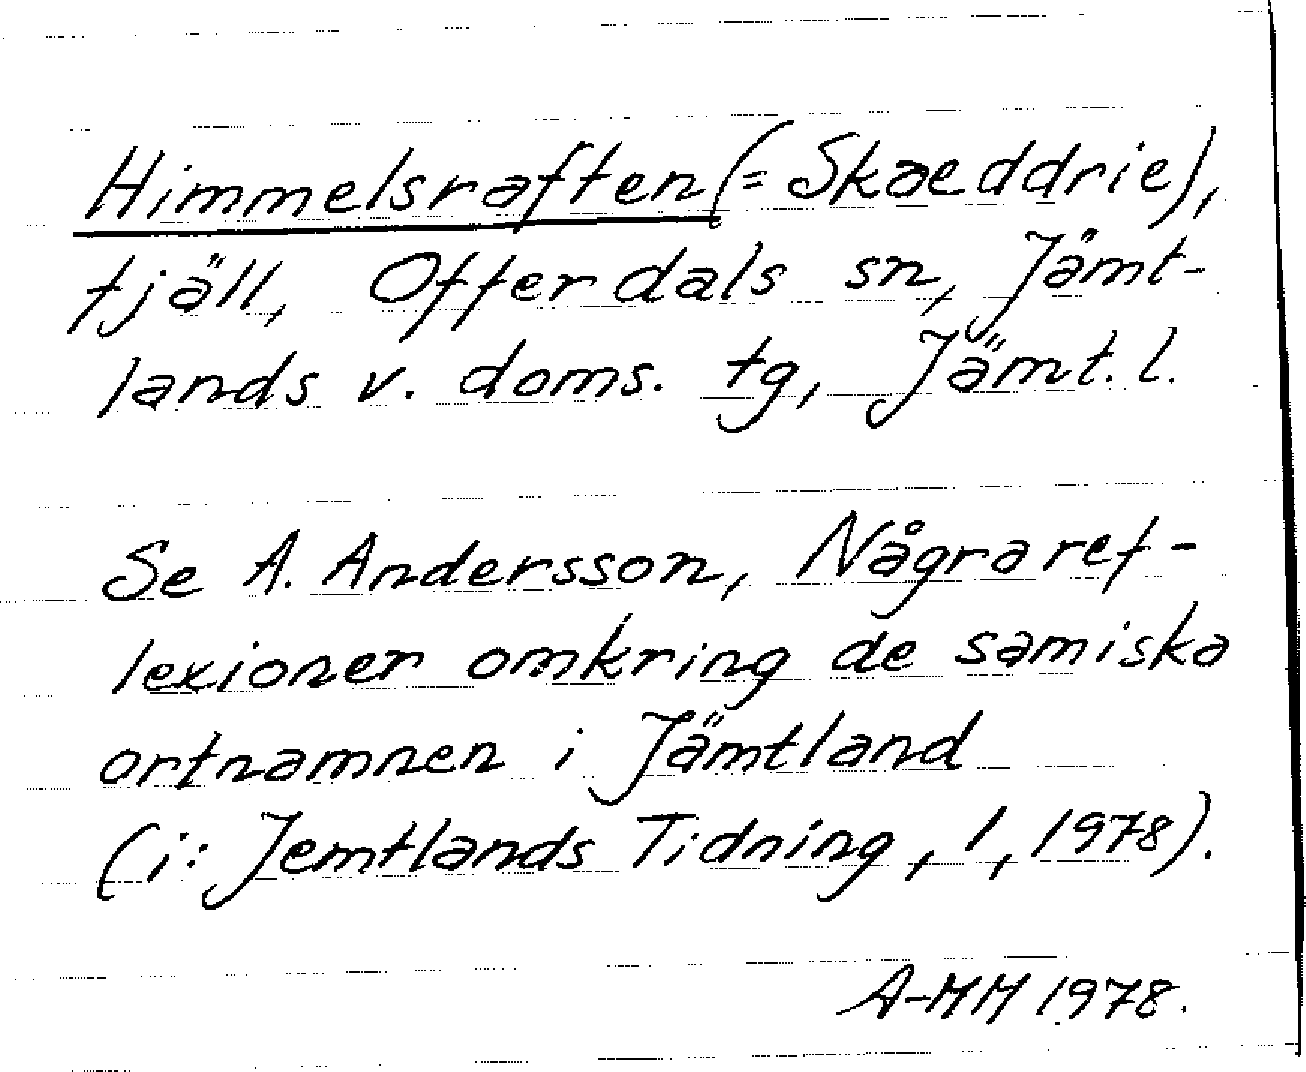 Himmelsraften (= Skaeddrie),
fjäll, Offerdals sn, Jämt-
lands v. doms. tg, Jämt. l.
Se A. Andersson, Några ref-
lexioner omkring de samiska
ortnamnen i Jämtland
(i: Jemtlands Tidning, 1, 1978).
A-MM 1978.